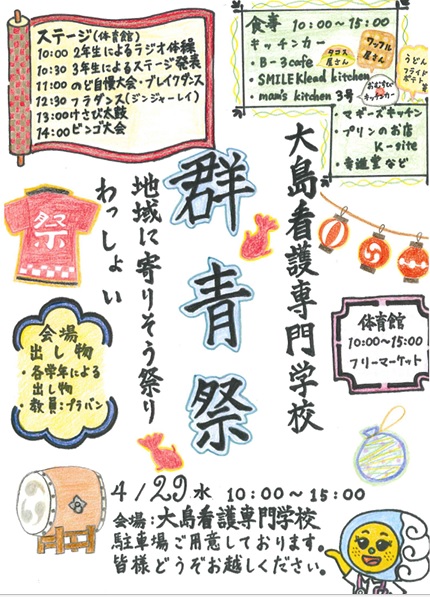 ステージ(体育館)
10:00 2年生によるラジオ体操
10:30 3年生によるステージ発表
11:00 のど自慢大会・ブレイクダンス
12:30 フラダンス(ジンジャーレイ)
13:00 けさび太鼓
14:00 ビンゴ大会
食事 10:00～15:00
キッチンカー
・B-3cafe
タコス屋さん
ワッフル屋さん
・SMILE Klead kitchen
・mam's kitchen 3号
おむすびキッチンカー
うどん
フライドポテト
・マギーズキッチン
・プリンのお店
K-site
・幸進堂など
大島看護専門学校
群青祭
地域に寄りそう祭り
わっしょい
祭
会場
出し物
・各学年による
出し物
・教員:プラバン
体育館
10:00～15:00
フリーマーケット
4/29水 10:00～15:00
会場:大島看護専門学校
駐車場ご用意しております。
皆様どうぞお越しください。